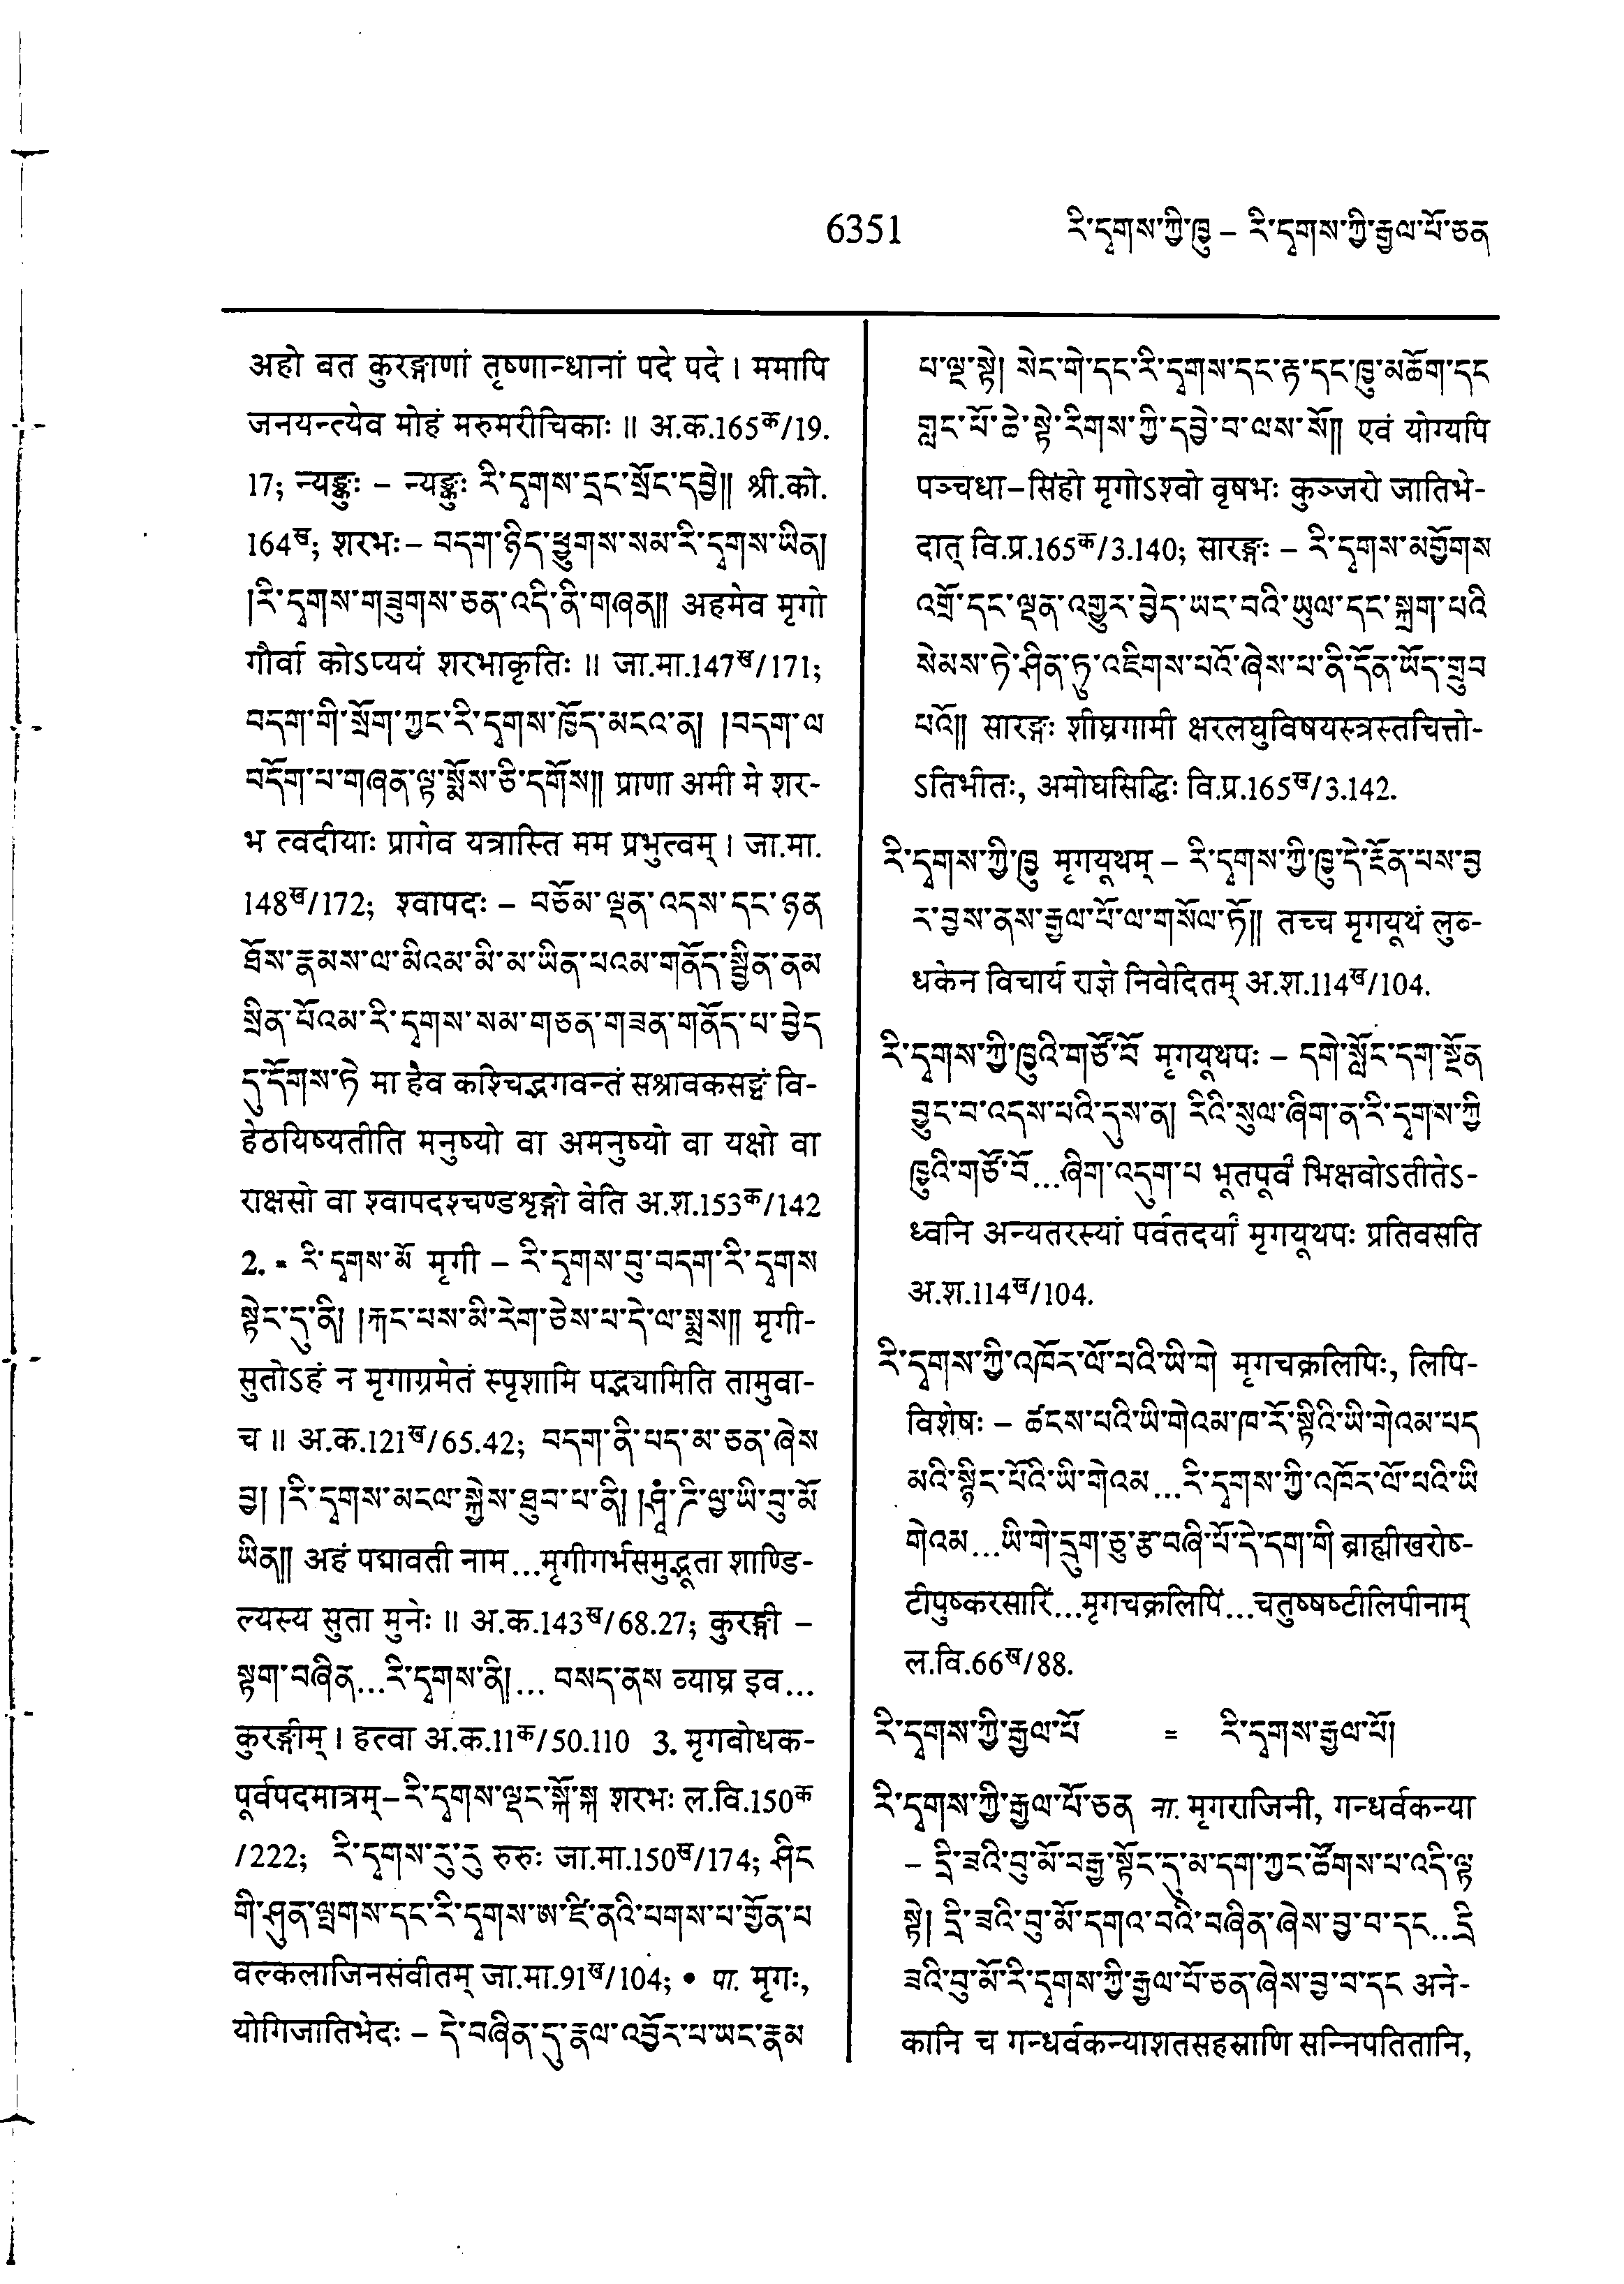 6351
རི་དྭགས་ཀྱི་ཁྱུ – རི་དྭགས་ཀྱི་རྒྱལ་པོ་ཅན
अहो बत कुरङ्गाणां तृष्णान्धानां पदे पदे । ममापि
जनयन्त्येव मोहं मरुमरीचिकाः ॥ अ.क.165क/19.
17; न्यङ्कुः – न्यङ्कुः རི་དྭགས་དྲང་སྲོང་དབྱེ༎ श्री.को.
164ख; शरभः – བདག་ཉིད་ཕྱུགས་སམ་རི་དྭགས་ཡིན།
།རི་དྭགས་གཟུགས་ཅན་འདི་ནི་གཞན༎ अहमेव मृगो
गौर्वा कोऽप्ययं शरभाकृतिः ॥ जा.मा.147ख/171;
བདག་གི་སྲོག་ཀྱང་རི་དྭགས་ཁྱོད་མངའ་ན། །བདག་ལ
བདོག་པ་གཞན་ལྟ་སྨོས་ཅི་དགོས༎ प्राणा अमी मे शर-
भ त्वदीयाः प्रागेव यत्रास्ति मम प्रभुत्वम् । जा.मा.
148ख/172; श्वापदः – བཅོམ་ལྡན་འདས་དང་ཉན
ཐོས་རྣམས་ལ་མིའམ་མི་མ་ཡིན་པའམ་གནོད་སྦྱིན་ནམ
སྲིན་པོའམ་རི་དྭགས་སམ་གཅན་གཟན་གནོད་པ་བྱེད
དུ་དོགས་ཏེ मा हैव कश्चिद्भगवन्तं सश्रावकसङ्घं वि-
हेठयिष्यतीति मनुष्यो वा अमनुष्यो वा यक्षो वा
राक्षसो वा श्वापदश्चण्डशृङ्गो वेति अ.श.153क/142
2. = རི་དྭགས་མོ मृगी – རི་དྭགས་བུ་བདག་རི་དྭགས
སྟེང་དུ་ནི། །རྐང་པས་མི་རེག་ཅེས་པ་དེ་ལ་སྨྲས༎ मृगी-
सुतोऽहं न मृगाग्रमेतं स्पृशामि पद्भ्यामिति तामुवा-
च ॥ अ.क.121ख/65.42; བདག་ནི་པད་མ་ཅན་ཞེས
བྱ། །རི་དྭགས་མངལ་སྐྱེས་ཐུབ་པ་ནི། །ཤཱཎྜི་ལྱ་ཡི་བུ་མོ
ཡིན༎ अहं पद्मावती नाम...मृगीगर्भसमुद्भूता शाण्डि-
ल्यस्य सुता मुनेः ॥ अ.क.143ख/68.27; कुरङ्गी –
སྟག་བཞིན...རི་དྭགས་ནི།... བསད་ནས व्याघ्र इव...
कुरङ्गीम् । हत्वा अ.क.11क/50.110 3. मृगबोधक-
पूर्वपदमात्रम् – རི་དྭགས་ལྡང་སྐོ་སྐ शरभः ल.वि.150क
/222; རི་དྭགས་རུ་རུ रुरुः जा.मा.150ख/174; ཤིང
གི་ཤུན་ལྤགས་དང་རི་དྭགས་ཨ་ཛི་ནའི་པགས་པ་གྱོན་པ
वल्कलाजिनसंवीतम् जा.मा.91ख/104; • पा. मृगः,
योगिजातिभेदः – དེ་བཞིན་དུ་རྣལ་འབྱོར་པ་ཡང་རྣམ
པ་ལྔ་སྟེ། སེང་གེ་དང་རི་དྭགས་དང་རྟ་དང་ཁྱུ་མཆོག་དང
གླང་པོ་ཆེ་སྟེ་རིགས་ཀྱི་དབྱེ་བ་ལས་སོ༎ एवं योग्यपि
पञ्चधा – सिंहो मृगोऽश्वो वृषभः कुञ्जरो जातिभे-
दात् वि.प्र.165क/3.140; सारङ्गः – རི་དྭགས་མགྱོགས
འགྲོ་དང་ལྡན་འགྱུར་བྱེད་ཡང་བའི་ཡུལ་དང་སྐྲག་པའི
སེམས་ཏེ་ཤིན་ཏུ་འཇིགས་པའོ་ཞེས་པ་ནི་དོན་ཡོད་གྲུབ
པའོ༎ सारङ्गः शीघ्रगामी क्षरलघुविषयस्त्रस्तचित्तो-
ऽतिभीतः, अमोघसिद्धिः वि.प्र.165ख/3.142.
རི་དྭགས་ཀྱི་ཁྱུ मृगयूथम् – རི་དྭགས་ཀྱི་ཁྱུ་དེ་རྔོན་པས་བྱ
ར་བྱས་ནས་རྒྱལ་པོ་ལ་གསོལ་ཏོ༎ तच्च मृगयूथं लुब्-
धकेन विचार्य राज्ञे निवेदितम् अ.श.114ख/104.
རི་དྭགས་ཀྱི་ཁྱུའི་གཙོ་བོ मृगयूथपः – དགེ་སློང་དག་སྔོན
བྱུང་བ་འདས་པའི་དུས་ན། རིའི་སུལ་ཞིག་ན་རི་དྭགས་ཀྱི
ཁྱུའི་གཙོ་བོ...ཞིག་འདུག་པ भूतपूर्वं भिक्षवोऽतीतेऽ-
ध्वनि अन्यतरस्यां पर्वतदर्यां मृगयूथपः प्रतिवसति
अ.श.114ख/104.
རི་དྭགས་ཀྱི་འཁོར་ལོ་པའི་ཡི་གེ मृगचक्रलिपिः, लिपि-
विशेषः – ཚངས་པའི་ཡི་གེའམ་ཁ་རོ་སྟིའི་ཡི་གེའམ་པད
མའི་སྙིང་པོའི་ཡི་གེའམ...རི་དྭགས་ཀྱི་འཁོར་ལོ་པའི་ཡི
གེའམ...ཡི་གེ་དྲུག་ཅུ་རྩ་བཞི་པོ་དེ་དག་གི ब्राह्मीखरोष्-
टीपुष्करसारिं...मृगचक्रलिपिं...चतुष्षष्टीलिपीनाम्
ल.वि.66ख/88.
རི་དྭགས་ཀྱི་རྒྱལ་པོ = རི་དྭགས་རྒྱལ་པོ།
རི་དྭགས་ཀྱི་རྒྱལ་པོ་ཅན ना. मृगराजिनी, गन्धर्वकन्या
– དྲི་ཟའི་བུ་མོ་བརྒྱ་སྟོང་དུ་མ་དག་ཀྱང་ཚོགས་པ་འདི་ལྟ
སྟེ། དྲི་ཟའི་བུ་མོ་དགའ་བའི་བཞིན་ཞེས་བྱ་བ་དང...དྲི
ཟའི་བུ་མོ་རི་དྭགས་ཀྱི་རྒྱལ་པོ་ཅན་ཞེས་བྱ་བ་དང अने-
कानि च गन्धर्वकन्याशतसहस्राणि सन्निपतितानि,